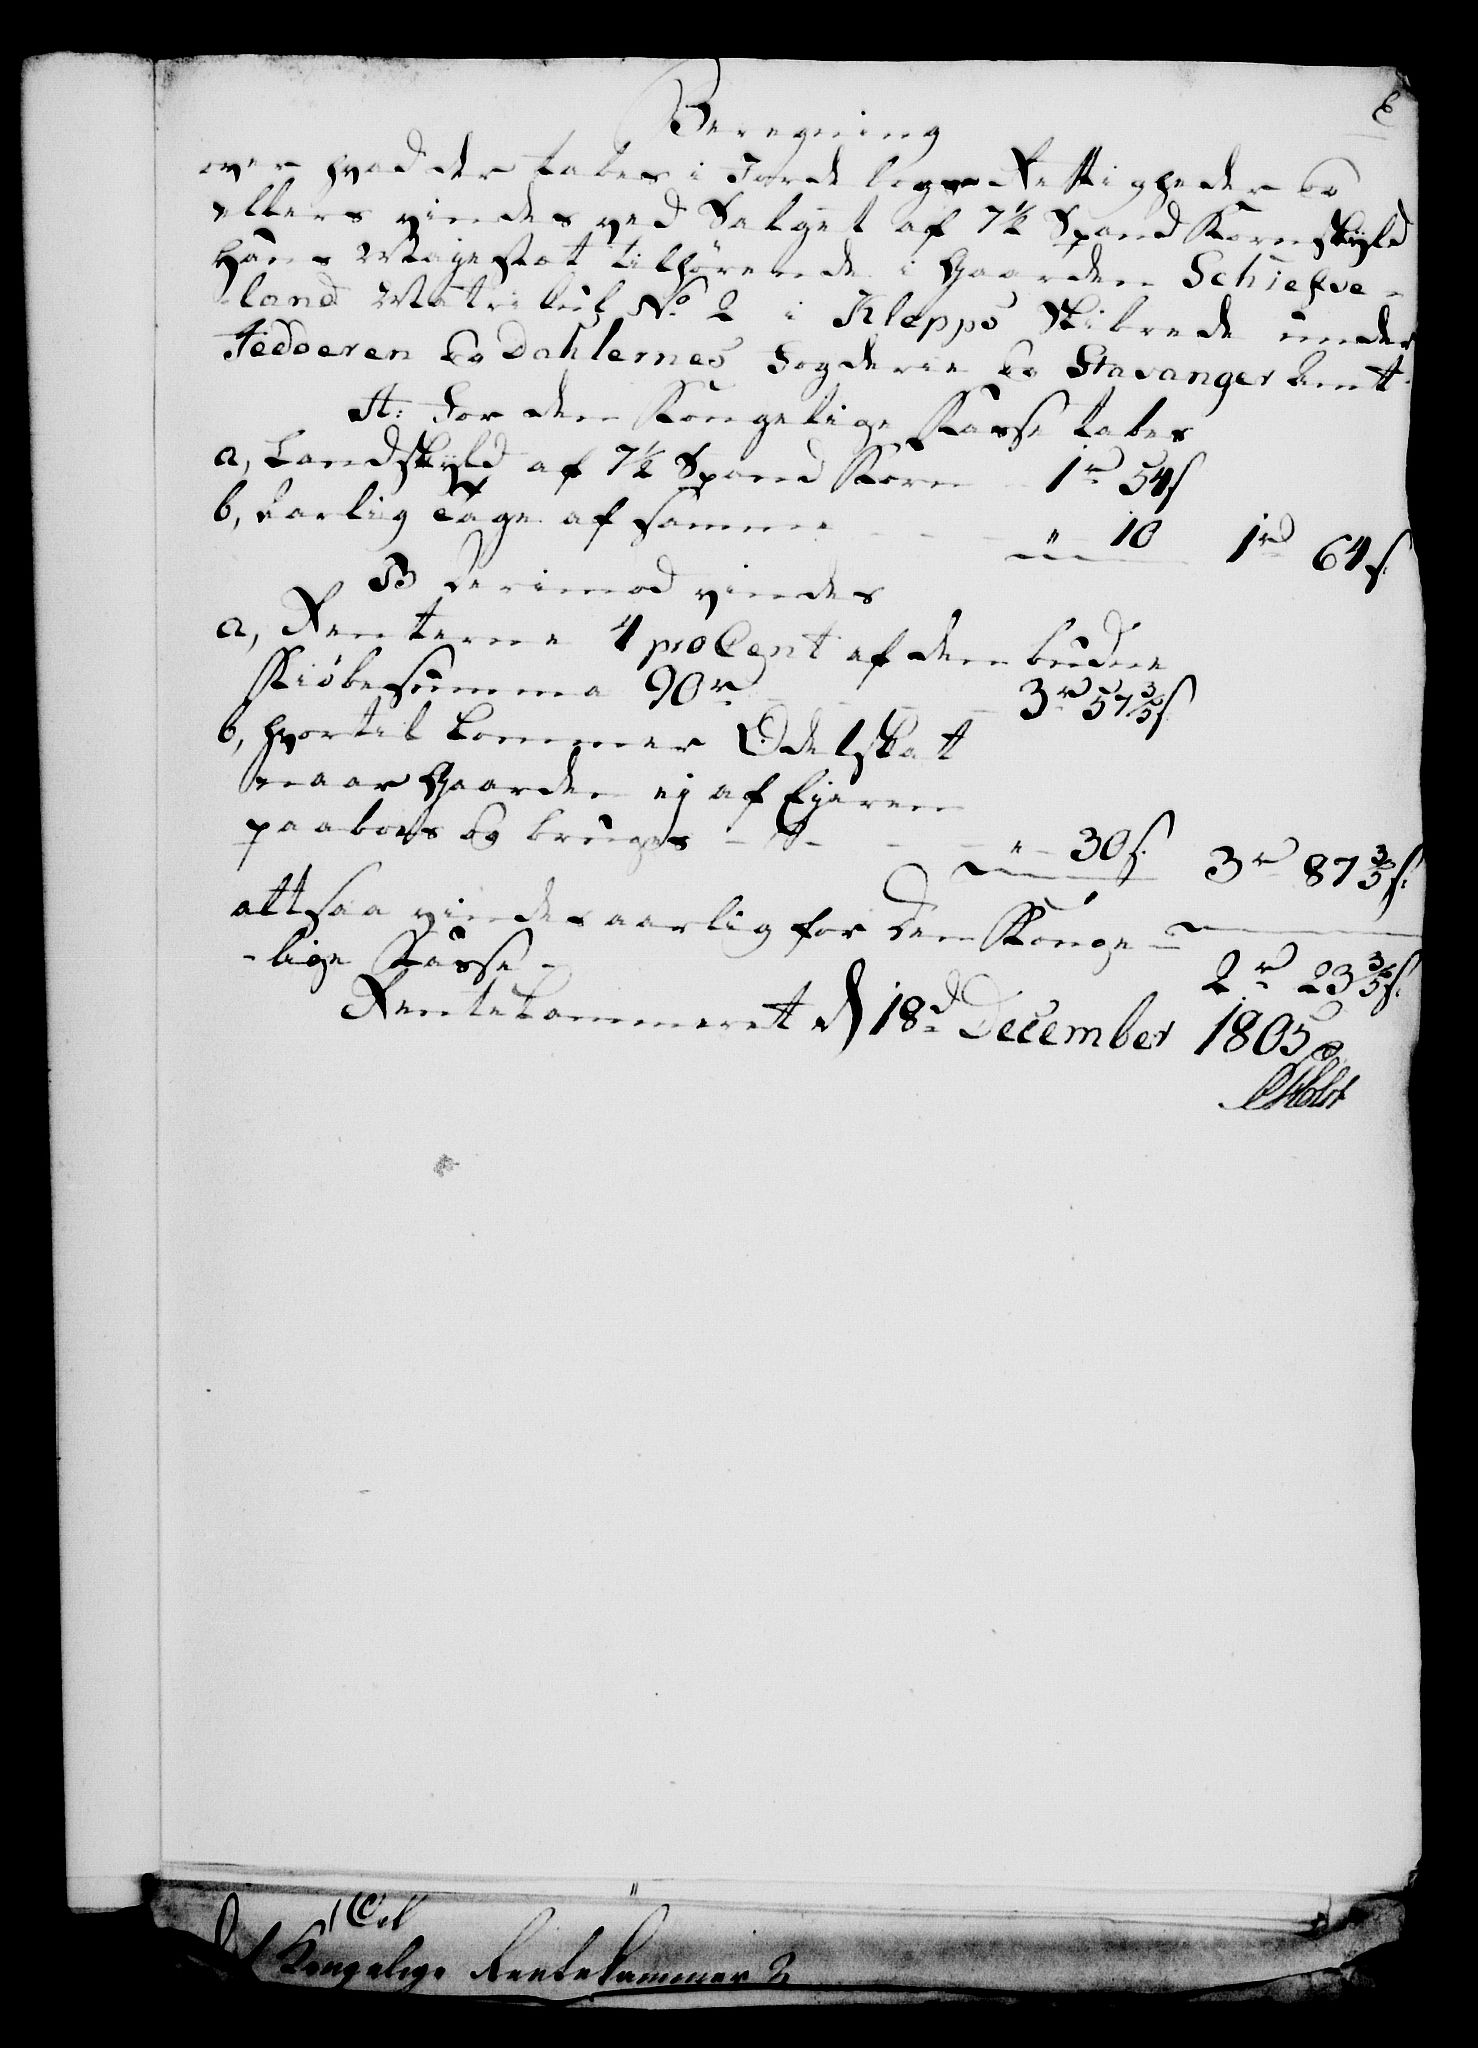 E
Beregning
over hvad der tabes i Jordebogs Rettigheder og
ellers vindes ved Salget af 7½ Spand Kornskyld
Hans Mayestæt tilhørende i Gaarden Schiefve-
land Matricul No 2 i Klepps Skibrede under
Jedderen og Dahlernes Fogderie og Stavanger Amt.
A: For den Kongelige Kasse tabes
a, Landskyld af 7½ Spand Korn - 1rd 54s
b, aarlig Tage af samme - - - " 10 1rd 64s.
B Derimod vindes
a, Renterne 4 pro Cent af den budne
Kiøbesumma 90r - - - 3rd 57 3/5s.
b, hvortil kommer Odelskat
naar Gaarden ej af Ejeren
paaboes og bruges - - - - " - 30s. 3rd 87 3/5s.
altsaa vindes aarlig for den Konge-
-lige Kasse - 2rd 23 3/5s.
Rentekammeret d 18d December 1805
Holst
Til
Det Kongelige Rentekammer